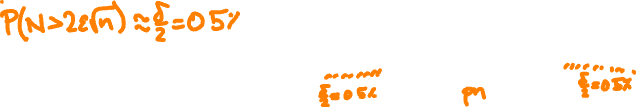 P(N>2ε√n) ≈ δ/2 = 0 5%
δ/2 = 0 5% pn δ/2 = 0 5%